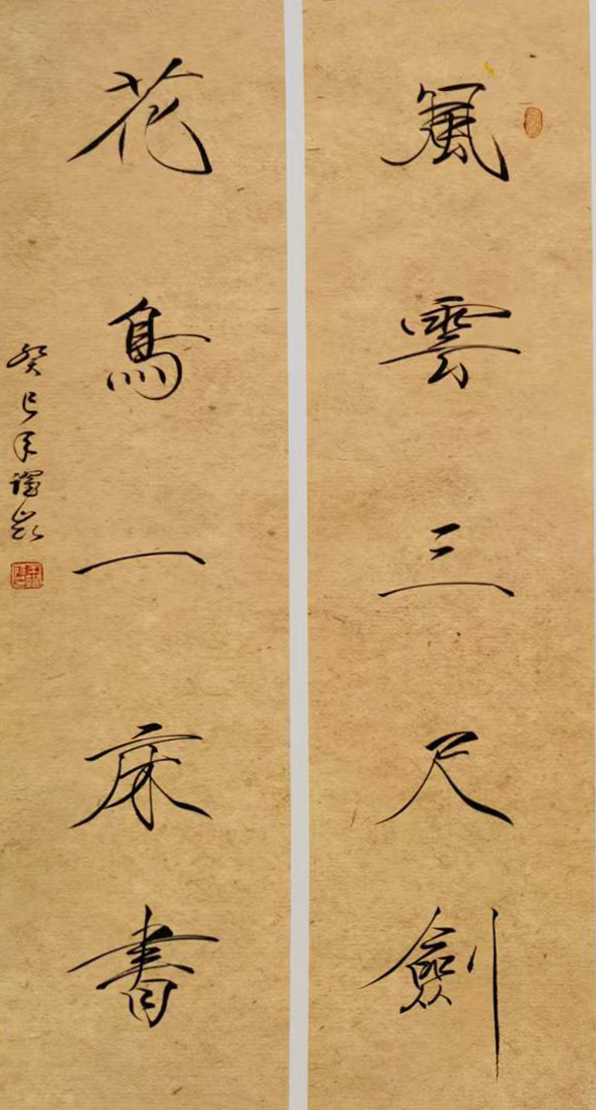 風雲三尺劍
花鳥一床書
癸巳年譯